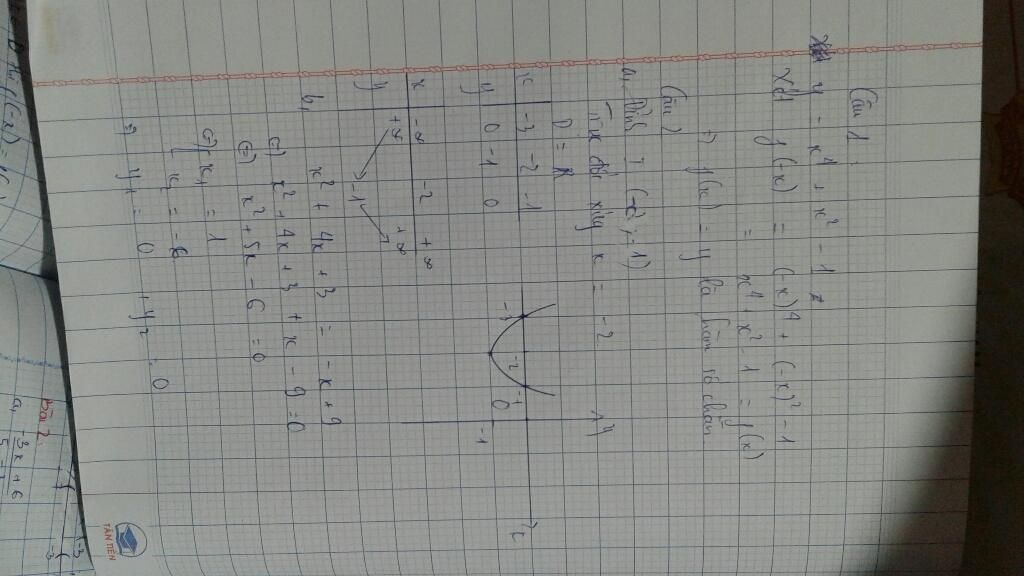 Câu 1 :
y = x⁴ + x² - 1
Xét f(-x) = (-x)⁴ + (-x)² - 1
= x⁴ + x² - 1 = f(x)
=) f(x) = y là hàm số chẵn
Câu 2
a, Đỉnh I (-2; -1)
Trục đối xứng x = -2
D = R
x -3 -2 -1
y 0 -1 0
y
x
-3 -2 -1 0
-1
x -∞ -2 +∞
y +∞ -1 +∞
b, x² + 4x + 3 = -x + 9
(=) x² + 4x + 3 + x - 9 = 0
(=) x² + 5x - 6 = 0
(=) x₁ = 1
x₂ = -6
=) y₁ = 0 y₂ = 0
TÂN TIẾN
Bài 2:
a, -3x + 6